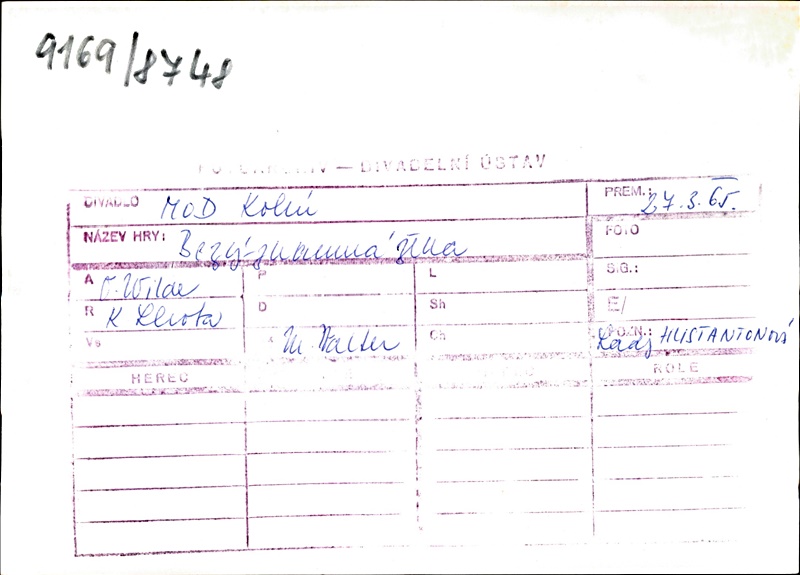 9169/8748
— DIVADELNÍ ÚSTAV
DIVADLO MOD Kolín
PREM.: 27.3.65.
NÁZEV HRY: Bezvýznamná žena
FOTO
A O. Wilde
P
L
S.G.:
R K
D
Sh
E/
Vs
M. Walter
Ch
POZN.: HLISTANTONOVÁ
HEREC
ROLE